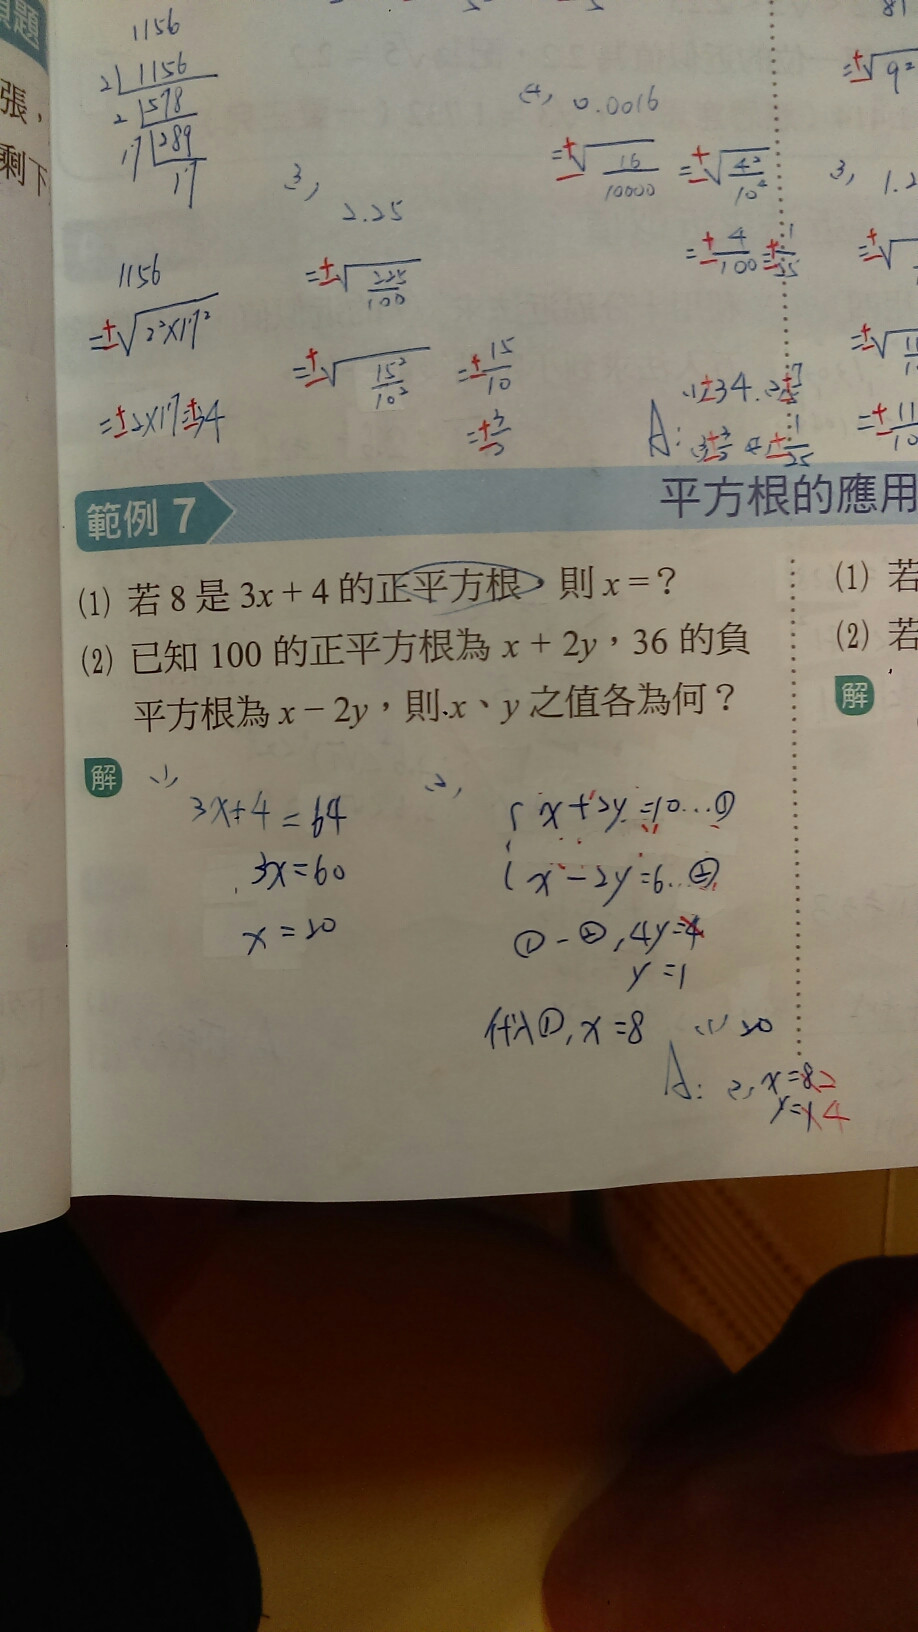 題
張，
剩下
1156
2 1156
2 578
17 289
17
1156
=±√2²×17²
=±2×17=±34
3,
2.25
=±√225/100
=±√15²/10²
=±15/10
=±3/2
4, 0.0016
=±√16/10000 =±√4²/10⁴
=±4/100=±1/25
A: (1)±34.
(3)±3/2 (4)±1/25
81
=±√9²
3, 1.2
=±√
=±√11
=±11/10
範例 7
平方根的應用
(1) 若 8 是 3x + 4 的正平方根，則 x = ？
(2) 已知 100 的正平方根為 x + 2y，36 的負
平方根為 x − 2y，則 x、y 之值各為何？
解
(1)
3x+4=64
3x=60
x=20
(2),
x+2y=10...①
x-2y=6..②
①-②,4y=4
y=1
代入①,x=8
A: (1) 20
2, x=8 2
y=1 4
(1) 若
(2) 若
解